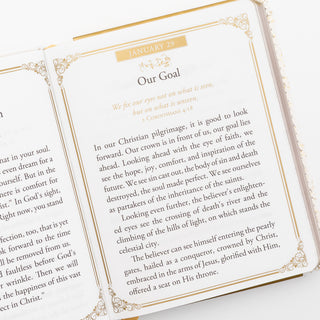 in your soul.
even dream for a
yourself. But in the
here is comfort for
ist." In God's sight,
Right now, you stand
fection, too, that is yet
ok forward to the time
will be removed from us,
faultless before God's
wrinkle. Then we will
the happiness of this vast
ect in Christ."
JANUARY 29
Our Goal
We fix our eyes not on what is seen,
but on what is unseen.
2 CORINTHIANS 4:18
In our Christian pilgrimage, it is good to look
forward. Our crown is in front of us, our goal lies
ahead. Looking ahead with the eye of faith, we
see the hope, joy, comfort, and inspiration of the
future. We see sin cast out, the body of sin and death
destroyed, the soul made perfect. We see ourselves
as partakers of the inheritance of the saints.
Looking even further, the believer's enlighten-
ed eyes see the crossing of death's river and the
climbing of the hills of light, on which stands the
celestial city.
The believer can see himself entering the pearly
gates, hailed as a conqueror, crowned by Christ,
embraced in the arms of Jesus, glorified with Him,
offered a seat on His throne.